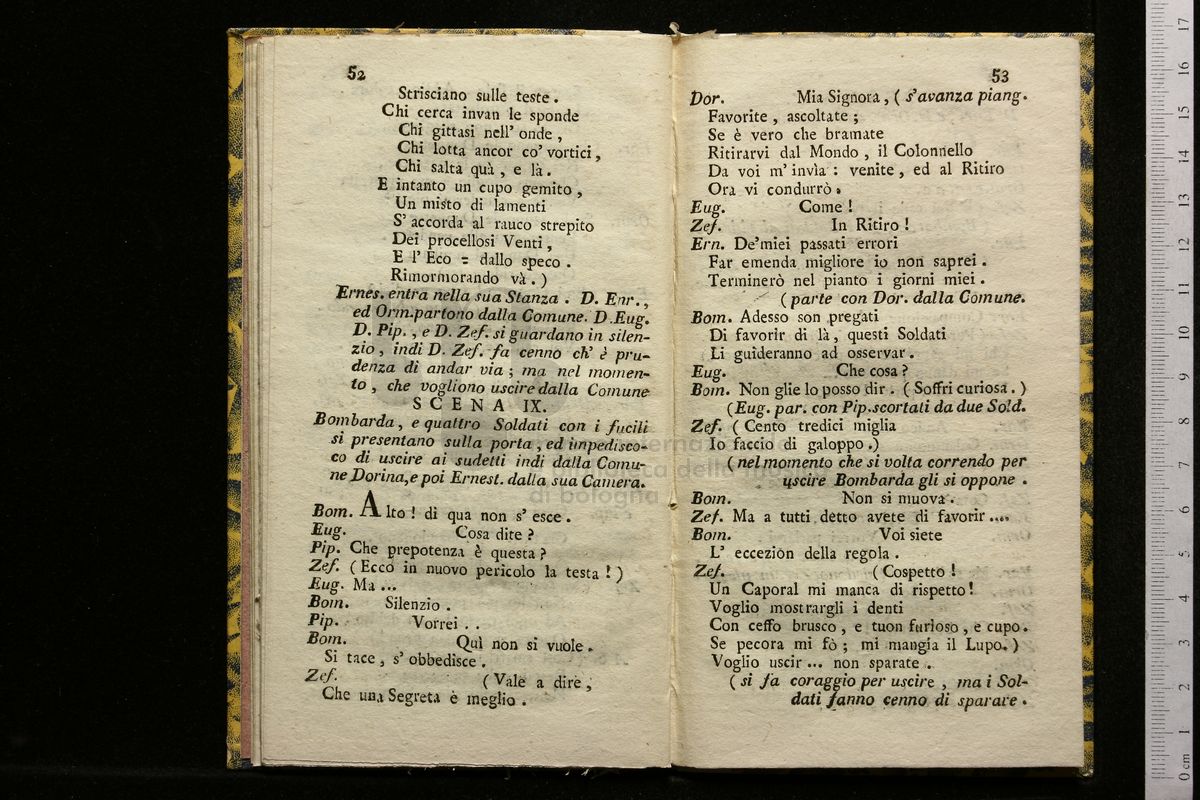 52
Strisciano sulle teste.
Chi cerca invan le sponde
Chi gittasi nell' onde,
Chi lotta ancor co' vortici,
Chi salta quà, e là.
E intanto un cupo gemito,
Un misto di lamenti
S' accorda al rauco strepito
Dei procellosi Venti,
E l' Eco = dallo speco.
Rimormorando và.)
Ernes. entra nella sua Stanza. D. Enr.,
ed Orm. partono dalla Comune. D. Eug.
D. Pip., e D. Zef. si guardano in silen-
zio, indi D. Zef. fa cenno ch' è pru-
denza di andar via; ma nel momen-
to, che vogliono uscire dalla Comune
SCENA IX.
Bombarda, e quattro Soldati con i fucili
si presentano sulla porta, ed impedisco-
co di uscire ai sudetti indi dalla Comu-
ne Dorina, e poi Ernest. dalla sua Camera.
Bom. Alto! di qua non s' esce.
Eug. Cosa dite?
Pip. Che prepotenza è questa?
Zef. (Ecco in nuovo pericolo la testa!)
Eug. Ma...
Bom. Silenzio.
Pip. Vorrei..
Bom. Quì non si vuole.
Si tace, s' obbedisce.
Zef. (Vale a dire,
Che una Segreta è meglio.
53
Dor. Mia Signora, (s'avanza piang.
Favorite, ascoltate;
Se è vero che bramate
Ritirarvi dal Mondo, il Colonnello
Da voi m' invìa: venite, ed al Ritiro
Ora vi condurrò.
Eug. Come!
Zef. In Ritiro!
Ern. De'miei passati errori
Far emenda migliore io non saprei.
Terminerò nel pianto i giorni miei.
(parte con Dor. dalla Comune.
Bom. Adesso son pregati
Di favorir di là, questi Soldati
Li guideranno ad osservar.
Eug. Che cosa?
Bom. Non glie lo posso dir. (Soffri curiosa.)
(Eug. par. con Pip. scortati da due Sold.
Zef. (Cento tredici miglia
Io faccio di galoppo.)
(nel momento che si volta correndo per
uscire Bombarda gli si oppone.
Bom. Non si muova.
Zef. Ma a tutti detto avete di favorir....
Bom. Voi siete
L' eccezion della regola.
Zef. (Cospetto!
Un Caporal mi manca di rispetto!
Voglio mostrargli i denti
Con ceffo brusco, e tuon furioso, e cupo.
Se pecora mi fò; mi mangia il Lupo.)
Voglio uscir... non sparate.
(si fa coraggio per uscire, ma i Sol-
dati fanno cenno di sparare.